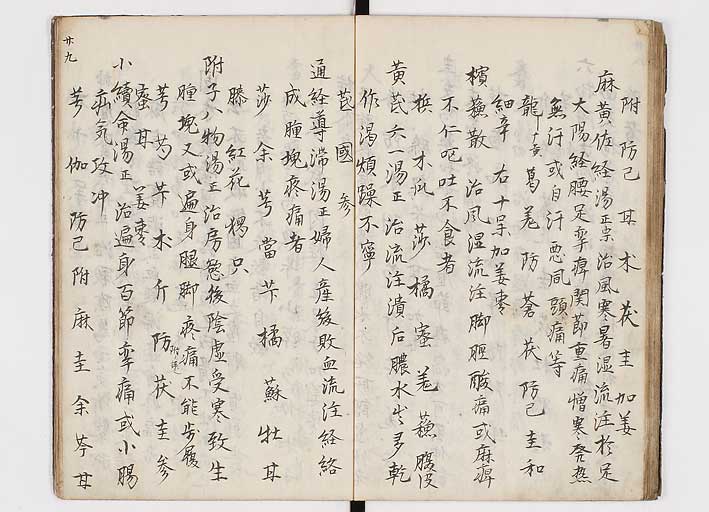 附 防己 甘 术 茯 圭 加姜
麻黄佐経湯正宗治風寒暑湿流注於足
大陽経腰足攣痺関節重痛憎寒発熱
無汗或自汗悪風頭痛等
龍 黄 葛 羌 防 蒼 茯 防己 圭 和
細辛 右十味加姜枣
檳蘓散 治風湿流注脚脛酸痛或麻痺
不仁呕吐不食者
梹 木瓜 莎 橘 蜜 羌 蘓 腹皮
黄芪六一湯正 治流注潰后膿水出多乾
作渇煩躁不寧
芪 國 参
通経導滞湯正婦人産後敗血流注経絡
成腫塊疼痛者
莎 余 芎 當 芐 橘 蘇 牡 甘
膝 紅花 獨 只
附子八物湯正治房慾後陰虚受寒致生
腫塊又或遍身腿脚疼痛不能歩履
芎 芍 芐 术 介 防 茯 圭 参
蜜 甘 姜枣
小續命湯正 治遍身百節攣痛或小腸
疝気攻冲
芎 伽 防己 附 麻 圭 余 芩 甘
廿九